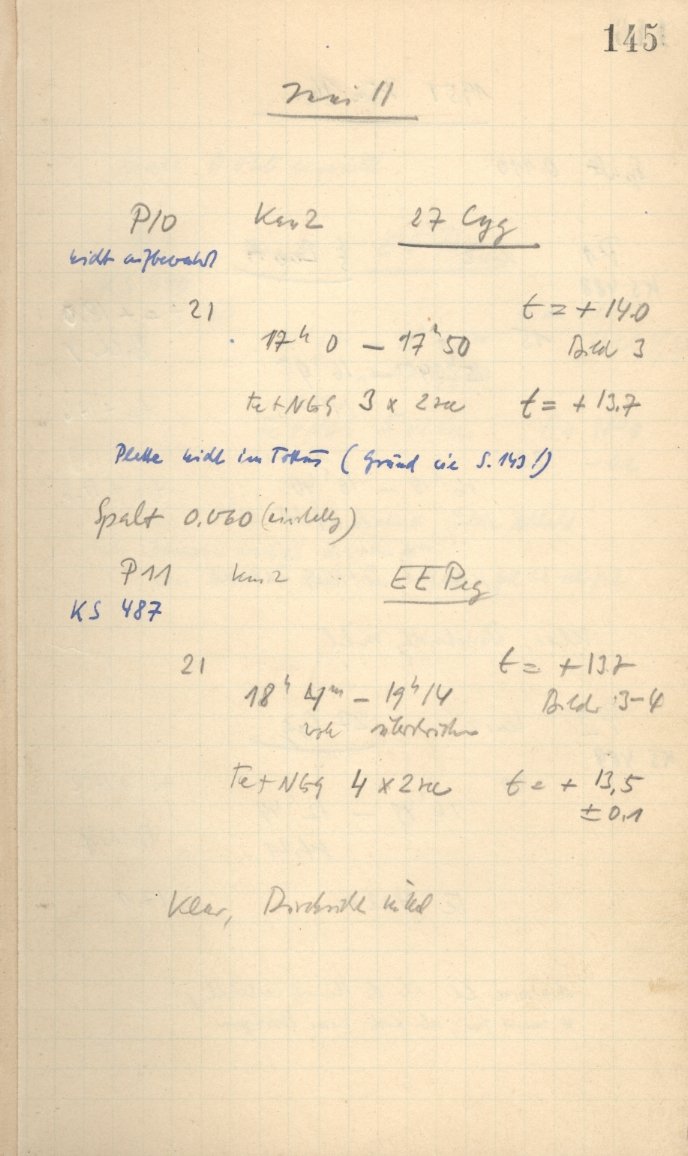 145
Juni 11
P10 Kam2 27 Cyg
nicht aufbewahrt
21 t = + 14.0
17h 0 – 17h 50 Bild 3
Fe+NGG 3 x 2sec t = + 13.7
Platte nicht im Fokus (Grund wie S. 143!)
Spalt 0.060 (einstellg)
P11 Kam2 EE Peg
KS 487
21 t = + 13.7
18h 4m – 19h 14 Bild 3–4
Fe+NGG 4 x 2sec t = + 13,5
± 0.1
Klar, Durchsicht mittel